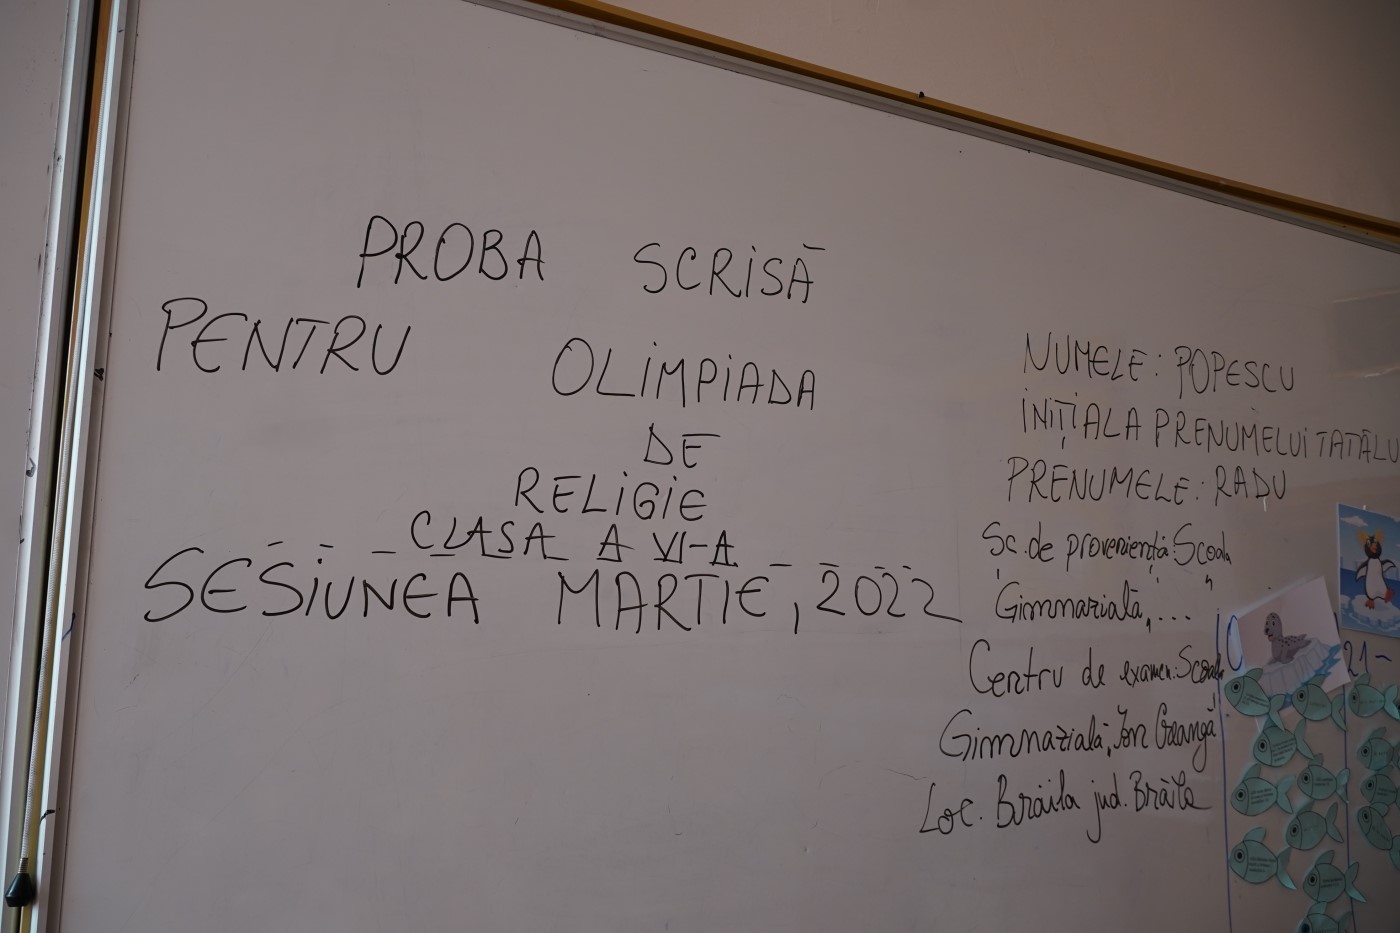 PROBA SCRISĂ
PENTRU OLIMPIADA
DE
RELIGIE
CLASA A VI-A
SESIUNEA MARTIE, 2022
NUMELE: POPESCU
INIȚIALA PRENUMELUI TATĂLU
PRENUMELE: RADU
Șc. de proveniență: Școala
Gimnazială "...."
Centru de examen: Școala
Gimnazială "Ion Creangă"
Loc. Brăila jud. Brăila
21-